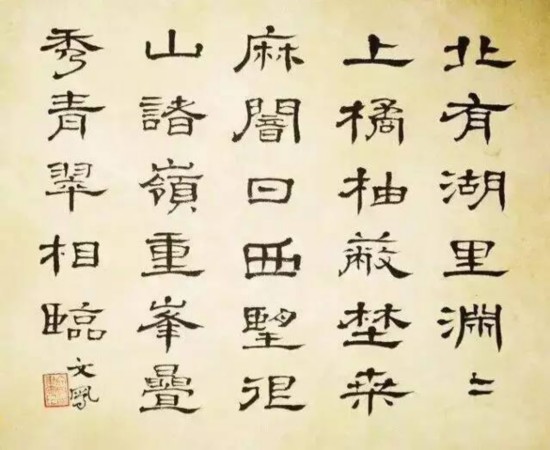 北有湖里淵〻
上橘柚蔽埜桑
麻闇日西望佷
山諸嶺重峯疊
秀青翠相臨
文鳳